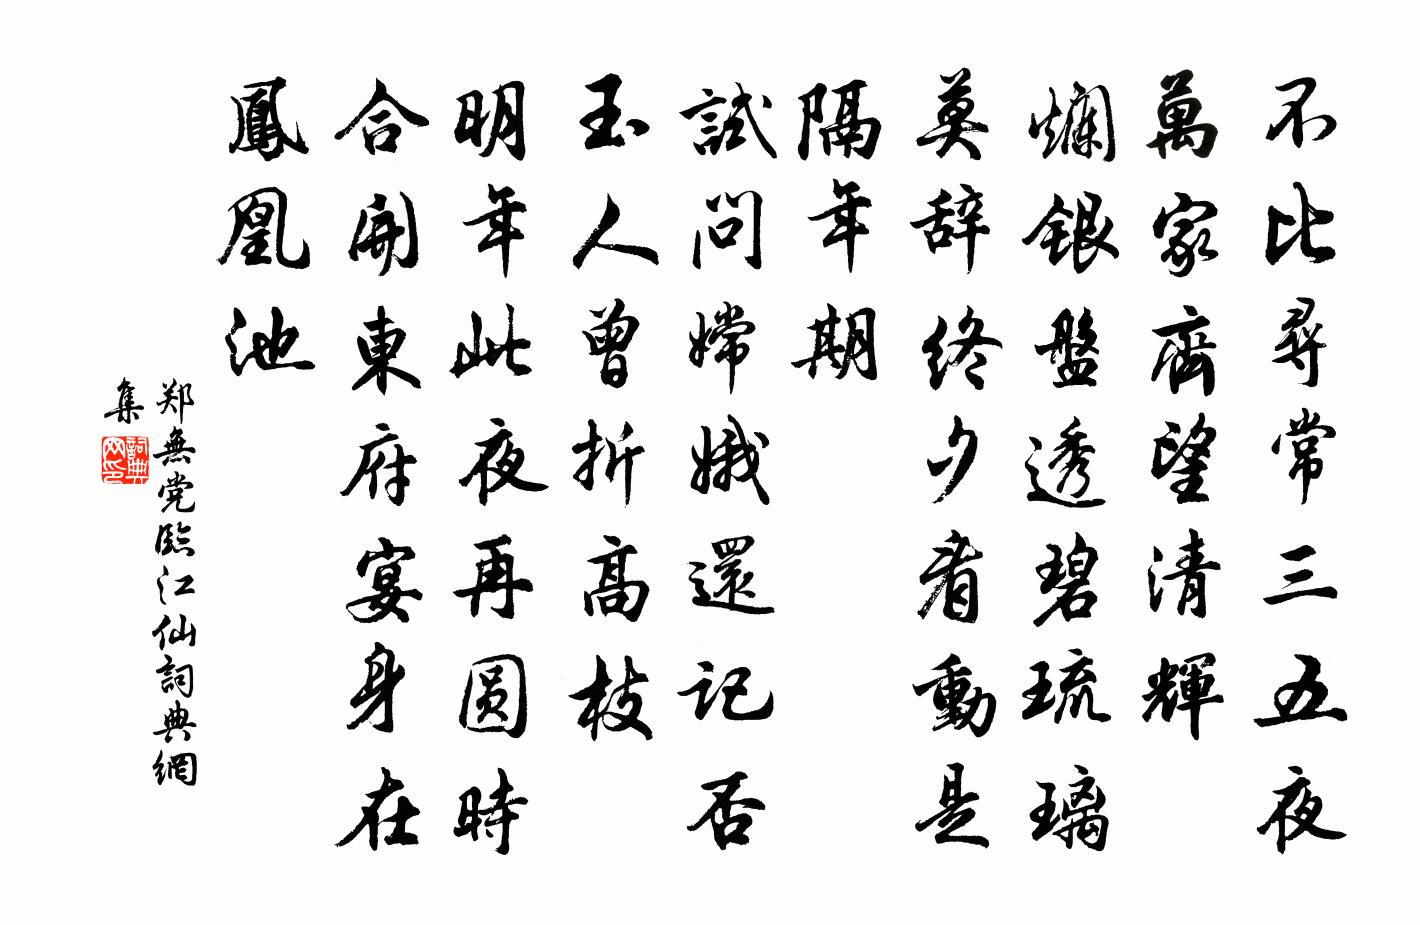 不比尋常三五夜
萬家齊望清輝
爛銀盤透碧琉璃
莫辞終夕看動是
隔年期
試問嫦娥還記否
玉人曾折高枝
明年此夜再圆時
合開東府宴身在
鳳凰池
郑無党臨江仙詞典網
集
詞典网印